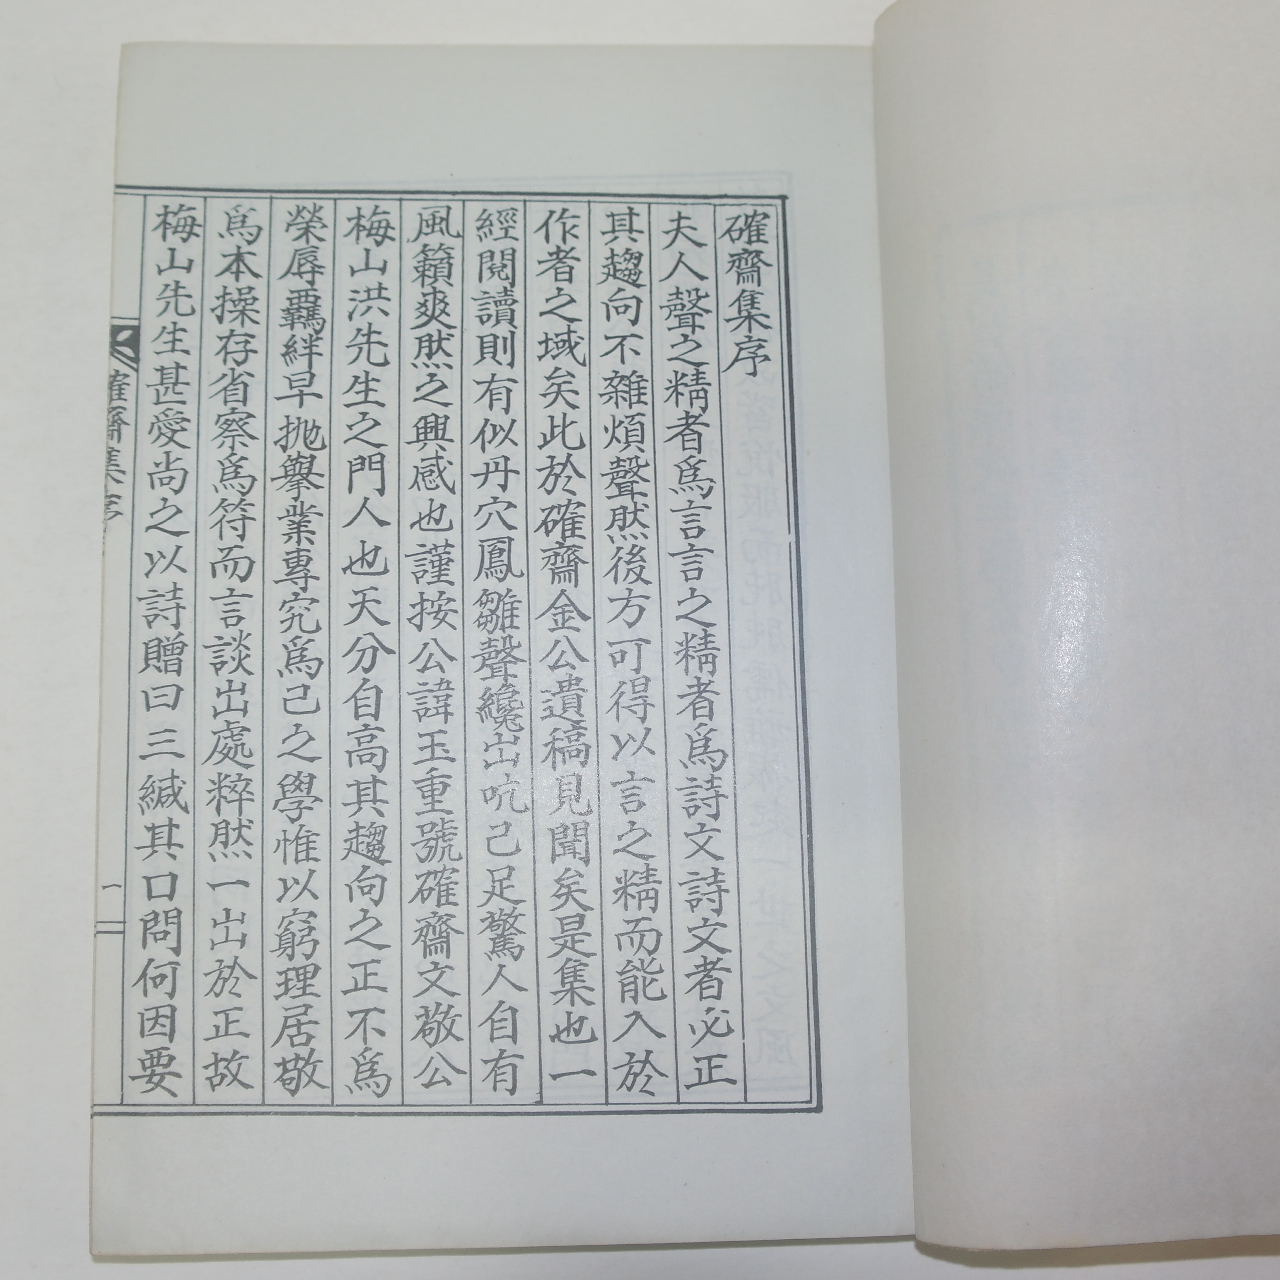 確齋集序
夫人聲之精者爲言言之精者爲詩文詩文者必正
其趨向不雜煩聲然後方可得以言之精而能入於
作者之域矣此於確齋金公遺稿見聞矣是集也一
經閱讀則有似丹穴鳳雛聲纔出吭己足驚人自有
風籟爽然之興感也謹按公諱玉重號確齋文敬公
梅山洪先生之門人也天分自高其趨向之正不爲
榮辱羈絆早抛擧業專究爲己之學惟以窮理居敬
爲本操存省察爲符而言談出處粹然一出於正故
梅山先生甚愛尚之以詩贈曰三緘其口問何因要
確齋集序
一